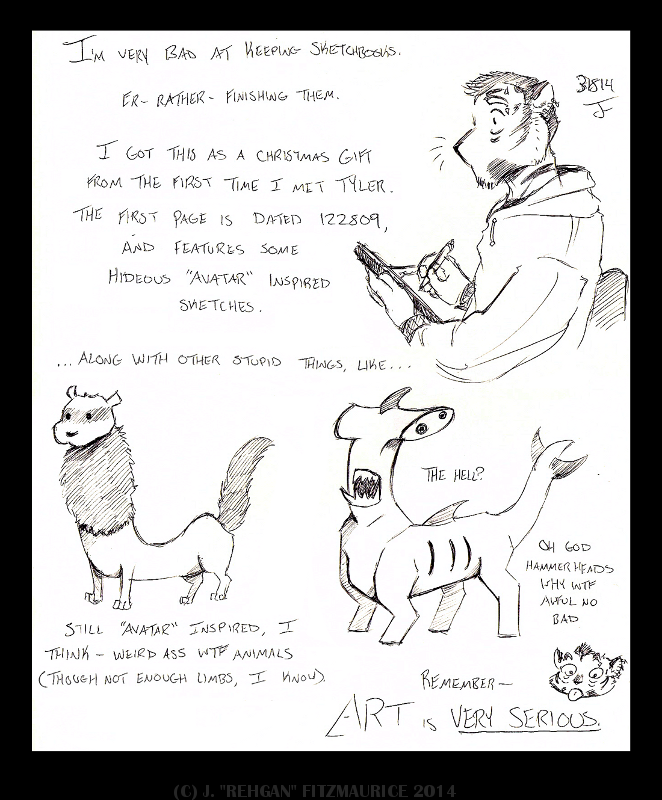 I'M VERY BAD AT KEEPING SKETCHBOOKS.
ER- RATHER- FINISHING THEM.
31814
J
I GOT THIS AS A CHRISTMAS GIFT
FROM THE FIRST TIME I MET TYLER.
THE FIRST PAGE IS DATED 122809,
AND FEATURES SOME
HIDEOUS "AVATAR" INSPIRED
SKETCHES.
...ALONG WITH OTHER STUPID THINGS, LIKE...
THE HELL?
OH GOD
HAMMERHEADS
WHY WTF
AWFUL NO
BAD
STILL "AVATAR" INSPIRED, I
THINK - WEIRD ASS WTF ANIMALS
(THOUGH NOT ENOUGH LIMBS, I KNOW).
REMEMBER-
ART IS VERY SERIOUS.
(C) J. "REHGAN" FITZMAURICE 2014